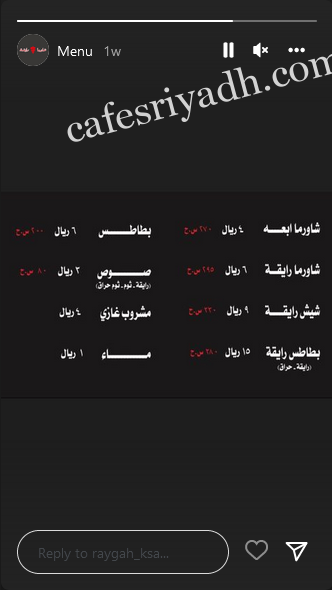 Menu 1w
cafesriyadh.com
شاورما ابعـــه ٤ ريال ٢٧٠ س.ح
شاورما رايقة ٦ ريال ٢٩٥ س.ح
شيش رايقـــة ٩ ريال ٢٣٠ س.ح
بطاطس رايقة ١٥ ريال ٢٨٠ س.ح
(رايقة ـ حراق)
بطاطـــس ٦ ريال ٢٠٠ س.ح
صـــوص ٢ ريال ٨٠ س.ح
(رايقة ـ ثوم ـ ثوم حراق)
مشروب غازي ٤ ريال
مـــاء ١ ريال
Reply to raygah_ksa...